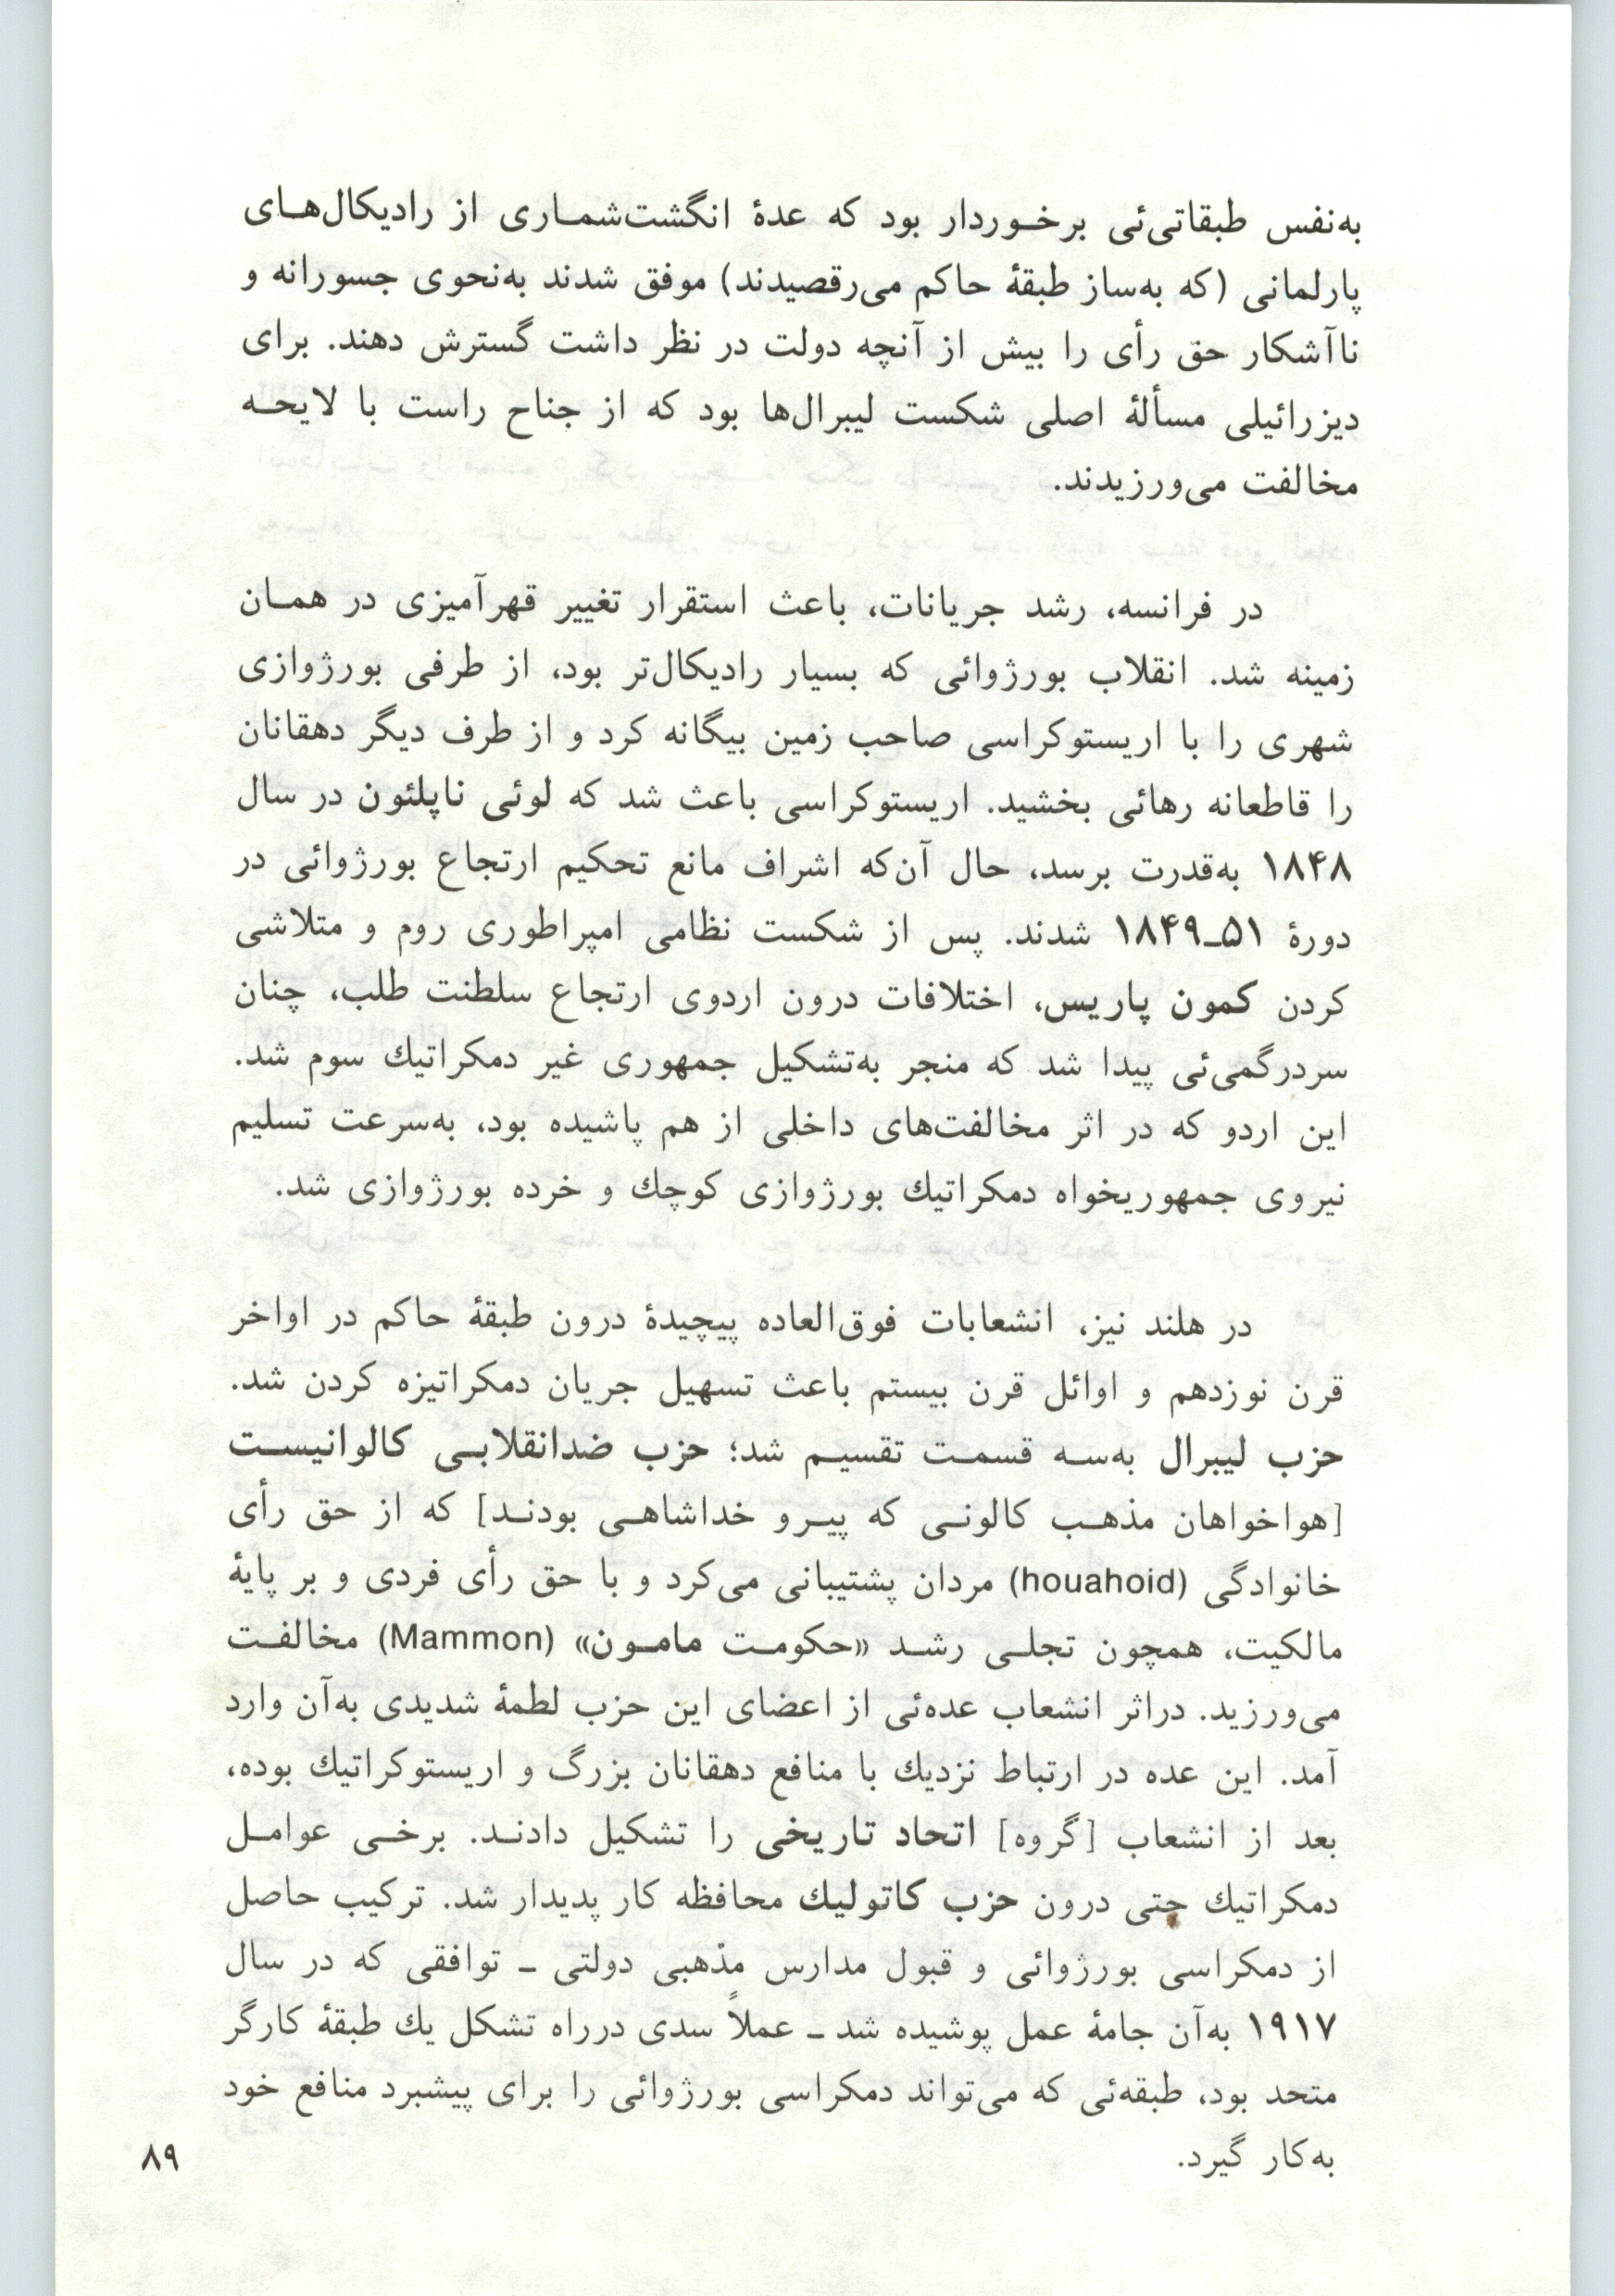 به‌نفس طبقاتی‌ئی برخـوردار بود که عدهٔ انگشت‌شمـاری از رادیکال‌هـای
پارلمانی (که به‌ساز طبقهٔ حاکم می‌رقصیدند) موفق شدند به‌نحوی جسورانه و
ناآشکار حق رأی را بیش از آنچه دولت در نظر داشت گسترش دهند. برای
دیزرائیلی مسألهٔ اصلی شکست لیبرال‌ها بود که از جناح راست با لایحـه
مخالفت می‌ورزیدند.
در فرانسه، رشد جریانات، باعث استقرار تغییر قهرآمیزی در همـان
زمینه شد. انقلاب بورژوائی که بسیار رادیکال‌تر بود، از طرفی بورژوازی
شهری را با اریستوکراسی صاحب زمین بیگانه کرد و از طرف دیگر دهقانان
را قاطعانه رهائی بخشید. اریستوکراسی باعث شد که لوئی ناپلئون در سال
۱۸۴۸ به‌قدرت برسد، حال آن‌که اشراف مانع تحکیم ارتجاع بورژوائی در
دورهٔ ۵۱ـ۱۸۴۹ شدند. پس از شکست نظامی امپراطوری روم و متلاشی
کردن کمون پاریس، اختلافات درون اردوی ارتجاع سلطنت طلب، چنان
سردرگمی‌ئی پیدا شد که منجر به‌تشکیل جمهوری غیر دمکراتیك سوم شد.
این اردو که در اثر مخالفت‌های داخلی از هم پاشیده بود، به‌سرعت تسلیم
نیروی جمهوریخواه دمکراتیك بورژوازی کوچك و خرده بورژوازی شد.
در هلند نیز، انشعابات فوق‌العاده پیچیدهٔ درون طبقهٔ حاکم در اواخر
قرن نوزدهم و اوائل قرن بیستم باعث تسهیل جریان دمکراتیزه کردن شد.
حزب لیبرال به‌سـه قسمـت تقسیـم شد؛ حزب ضدانقلابـی کالوانیسـت
[هواخواهان مذهـب کالونـی که پیـرو خداشاهـی بودنـد] که از حق رأی
خانوادگی (houahoid) مردان پشتیبانی می‌کرد و با حق رأی فردی و بر پایهٔ
مالکیت، همچون تجلـی رشـد «حکومـت مامـون» (Mammon) مخالفـت
می‌ورزید. دراثر انشعاب عده‌ئی از اعضای این حزب لطمهٔ شدیدی به‌آن وارد
آمد. این عده در ارتباط نزدیك با منافع دهقانان بزرگ و اریستوکراتیك بوده،
بعد از انشعاب [گروه] اتحاد تاریخی را تشکیل دادنـد. برخـی عوامـل
دمکراتیك حتی درون حزب کاتولیك محافظه کار پدیدار شد. ترکیب حاصل
از دمکراسی بورژوائی و قبول مدارس مذهبی دولتی ـ توافقی که در سال
۱۹۱۷ به‌آن جامهٔ عمل پوشیده شد ـ عملاً سدی درراه تشکل یك طبقهٔ کارگر
متحد بود، طبقه‌ئی که می‌تواند دمکراسی بورژوائی را برای پیشبرد منافع خود
به‌کار گیرد.
۸۹